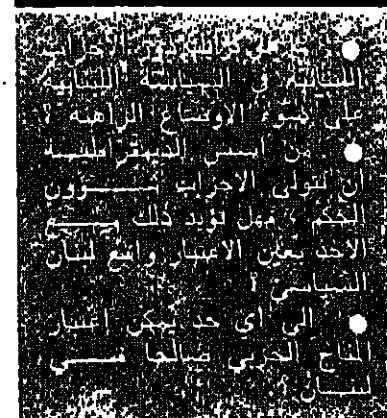 الاحزاب
اللبنانية في السياسة اللبنانية
على ضوء الاوضاع الراهنة ؟
من اسس الديمقراطية
ان تتولى الاحزاب شــؤون
الحكم ، فهل تؤيد ذلك مــع
الاخذ بعين الاعتبار واقع لبنان
السياسي ؟
الى اي حد يمكن اعتبار
المناخ الحزبي صالحا فــي
لبنــان ؟